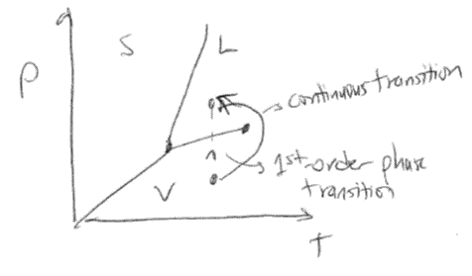 P
S
L
continuous transition
1st-order phase
transition
V
T